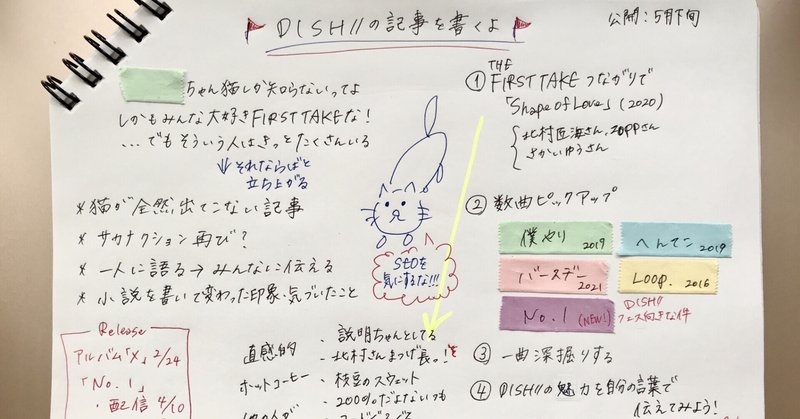 DISH//の記事を書くよ
公開:5月下旬
ちゃん猫しか知らないってよ
しかもみんな大好きFIRST TAKEな!
…でもそういう人はきっとたくさんいる
↓それならばと
立ち上がる
*猫が全然出てこない記事
*サカナクション再び?
*一人に語る→みんなに伝える
*小説を書いて変わった印象、気づいたこと
SEOを
気にするな!!!
Release
アルバム「X」2/24
「No.1」
・配信 4/10
直感的
ホットコーヒー
・説明ちゃんとしてる
・北村さんまつげ長っ!
・枝豆のスウェット
・200%だよないつも
① THE FIRST TAKEつながりで
「Shape of Love」(2020)
北村匠海さん、ZOPPさん
さかいゆうさん
② 数曲ピックアップ
僕やり 2017
へんてこ 2019
バースデー 2021
Loop. 2016
No.1 (NEW!)
DISH//
フェス向きな件
③ 一曲深掘りする
④ DISH//の魅力を自分の言葉で
伝えてみよう!